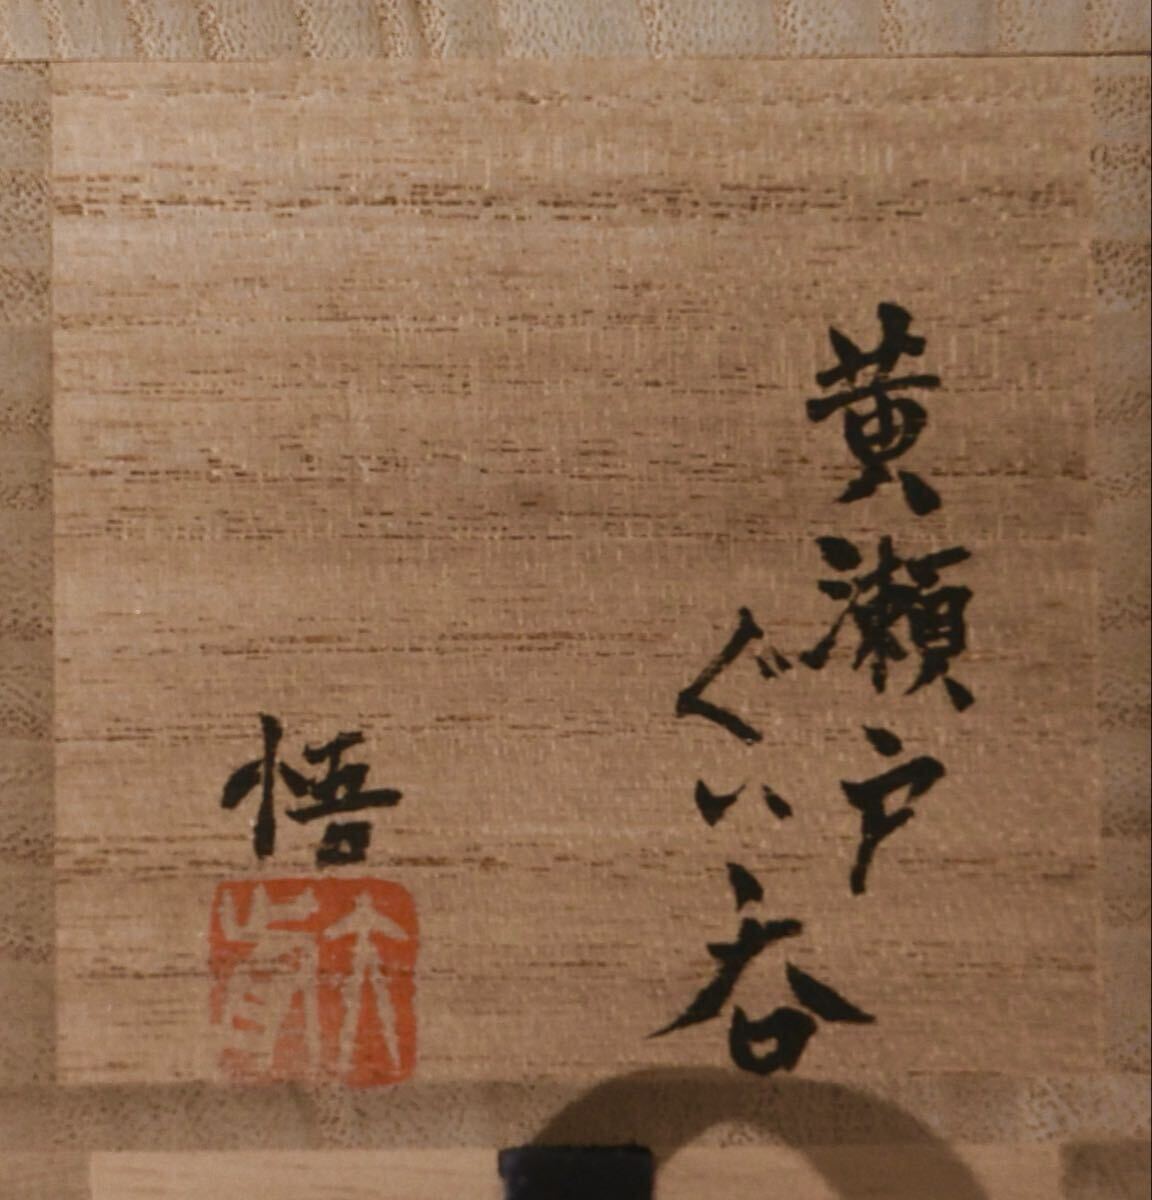 黄瀬戸
ぐい呑
悟